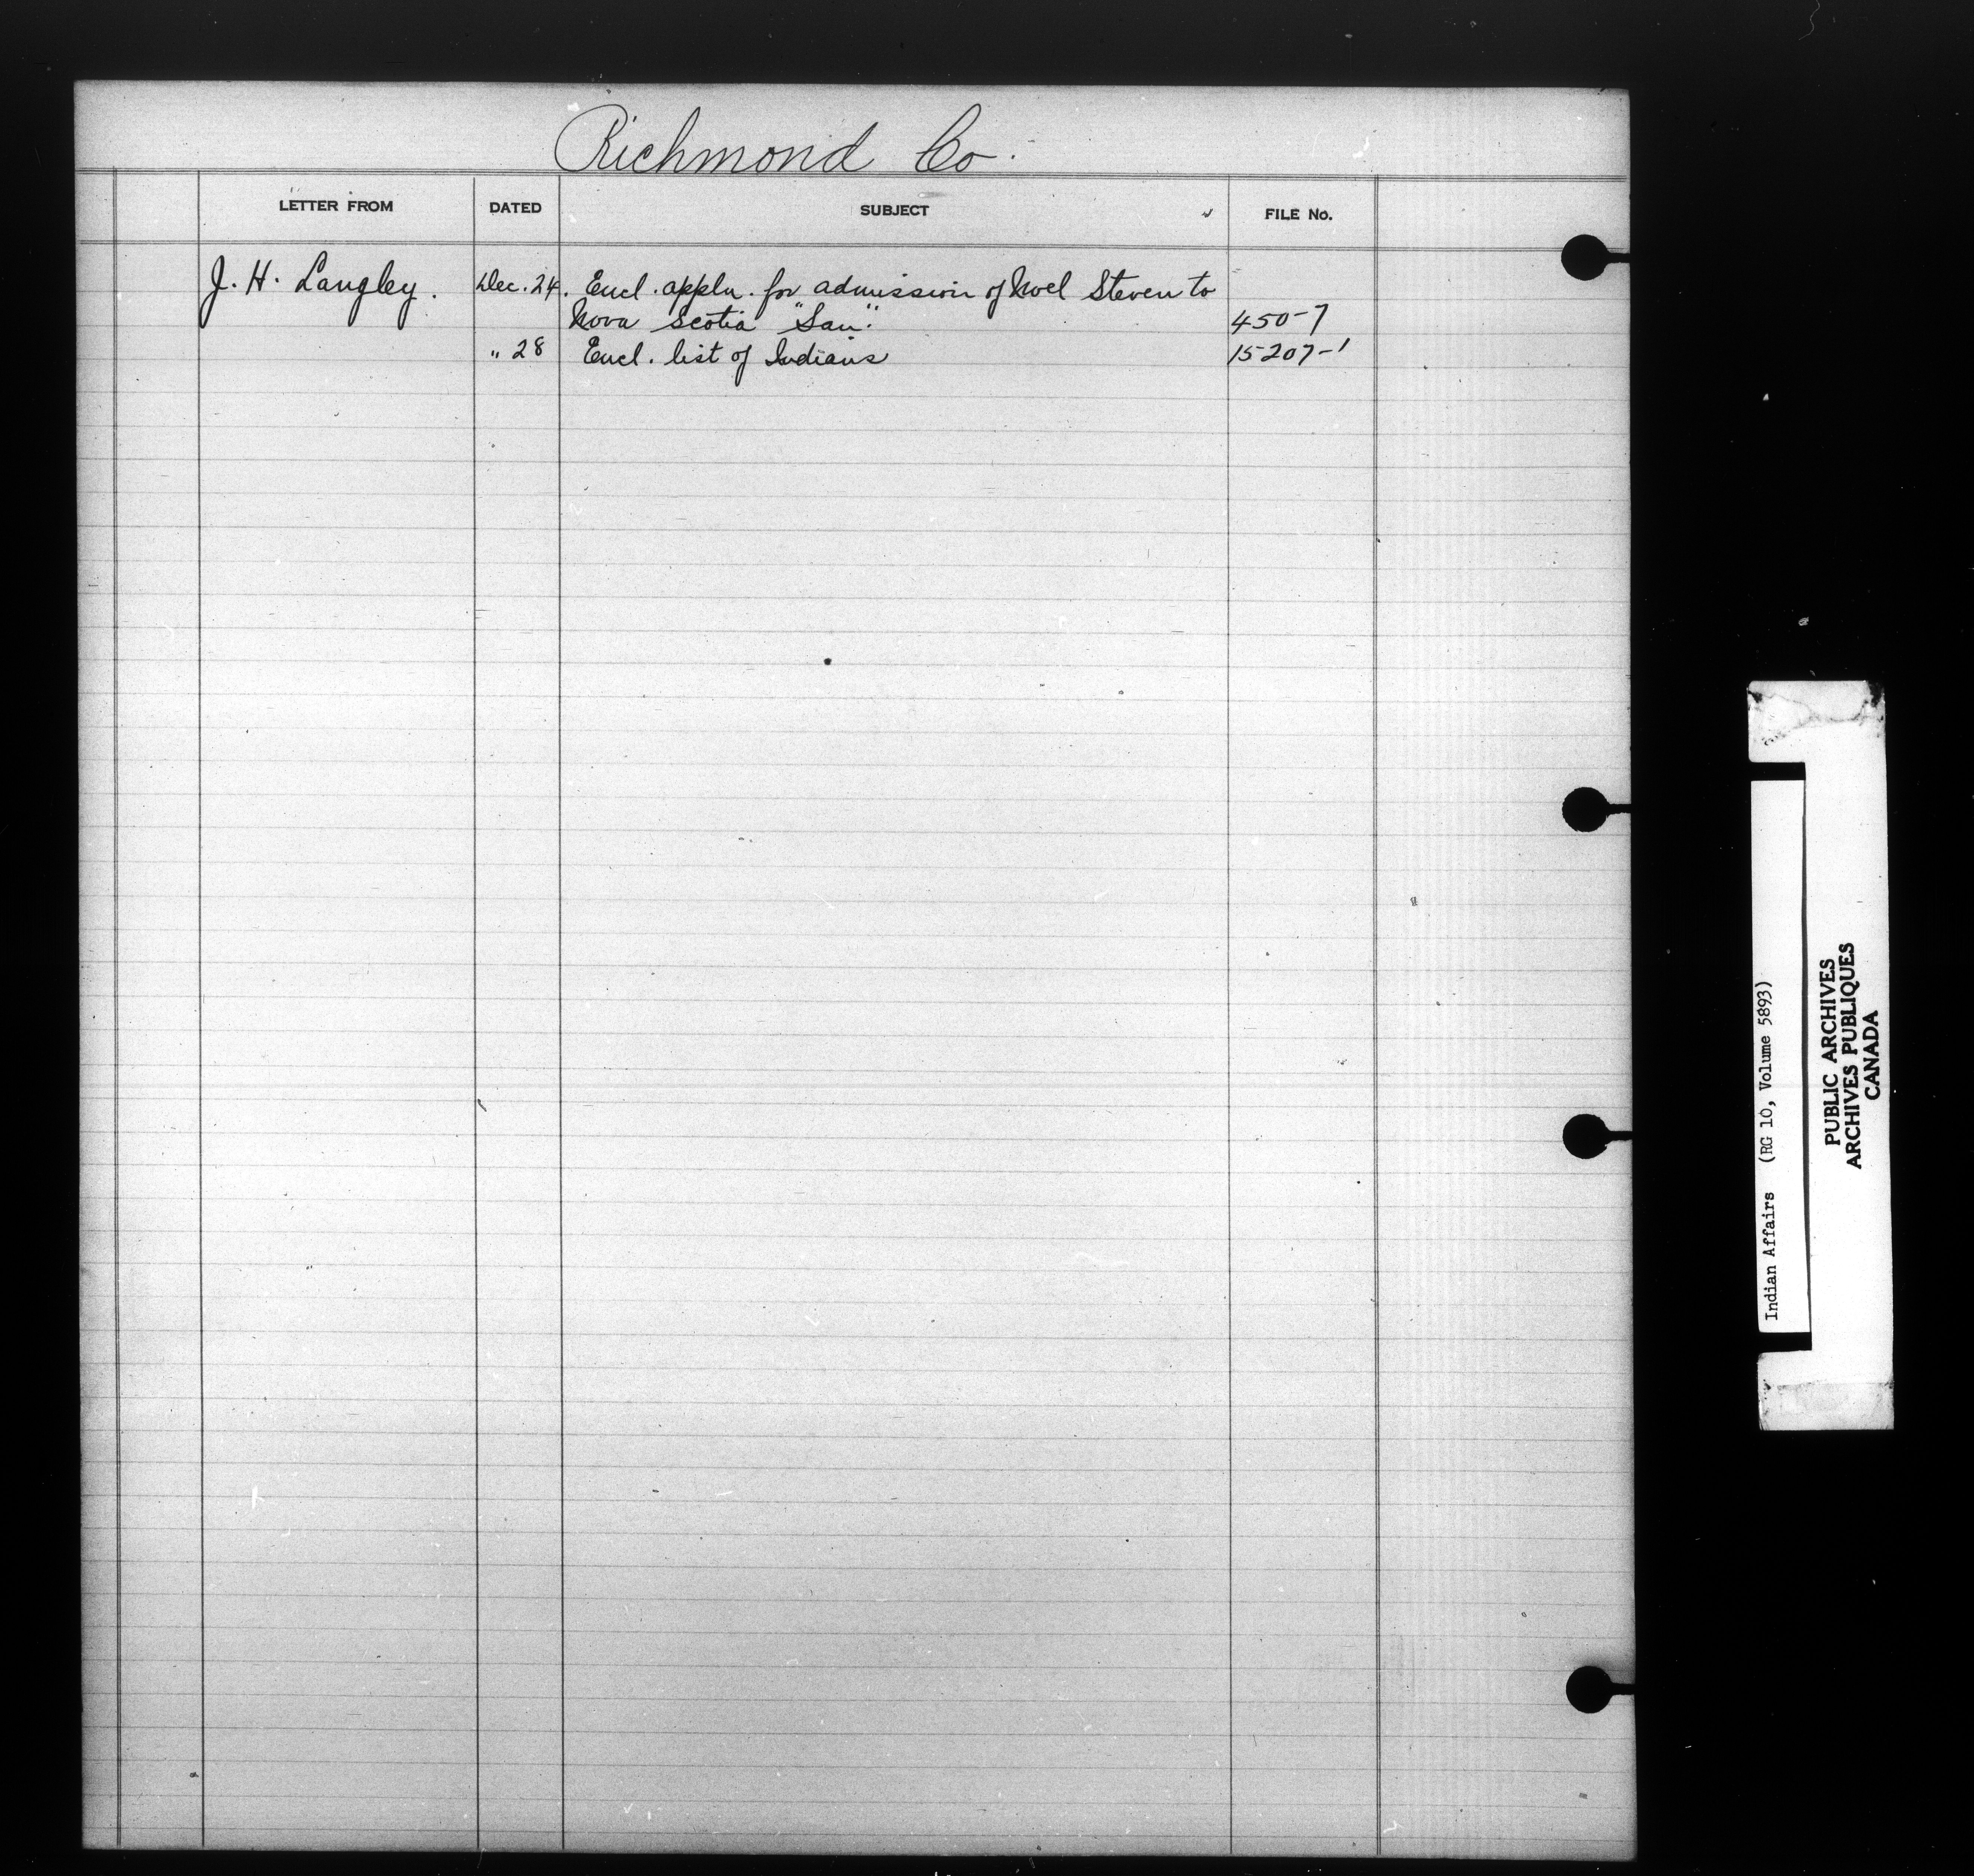 Richmond Co.
LETTER FROM DATED SUBJECT FILE No.
J. H. Langley. Dec. 24. Encl. appln. for admission of Noel Steven to
Nova Scotia "San". 450-7
" 28 Encl. list of Indians 15207-1
Indian Affairs (RG 10, Volume 5893)
PUBLIC ARCHIVES
ARCHIVES PUBLIQUES
CANADA